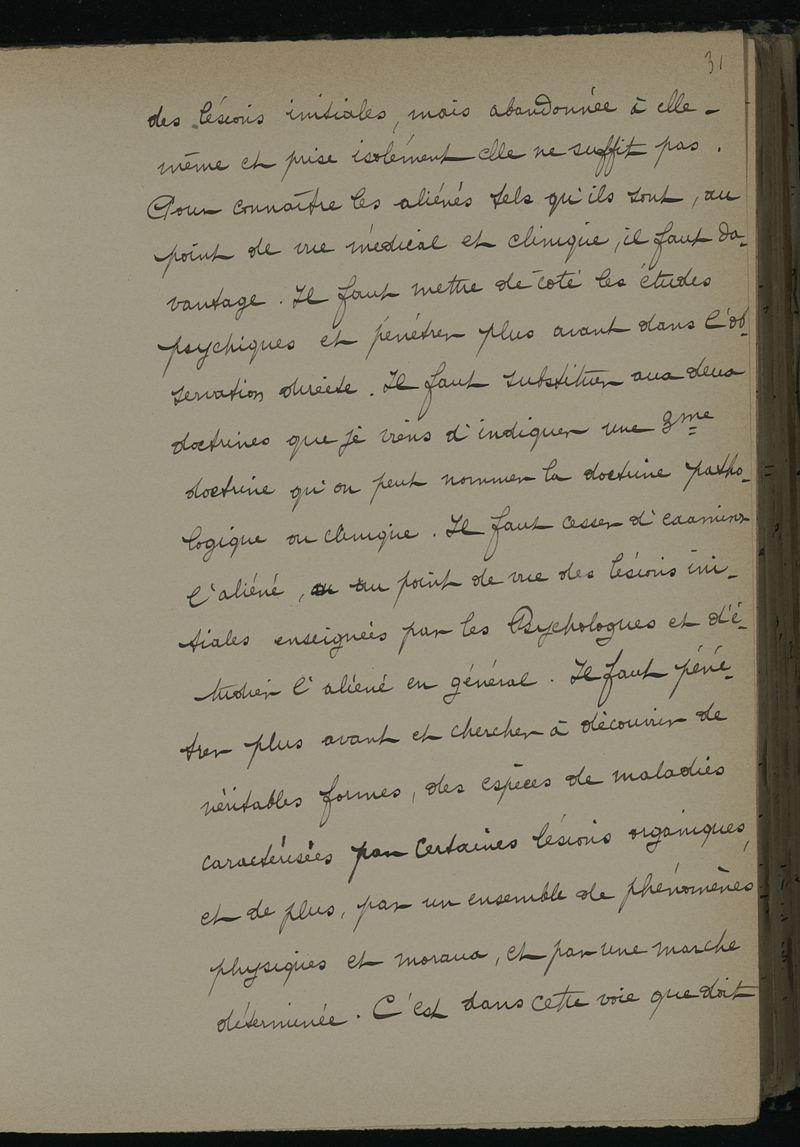 31
des lésions initiales, mais abandonnée à elle-
même et prise isolément elle ne suffit pas.
Pour connaître les aliénés tels qu'ils sont, au
point de vue médical et clinique, il faut da-
vantage. Il faut mettre de côté les études
psychiques et pénétrer plus avant dans l'ob-
servation directe. Il faut substituer aux deux
doctrines que je viens d'indiquer une 3me
doctrine qu'on peut nommer la doctrine patho-
logique ou clinique. Il faut cesser d'examiner
l'aliéné, au au point de vue des lésions ini-
tiales enseignées par les Psychologues et d'é-
tudier l'aliéné en général. Il faut péné-
trer plus avant et chercher à découvrir de
véritables formes, des espèces de maladies
caractérisées par certaines lésions organiques,
et de plus, par un ensemble de phénomènes
physiques et moraux, et par une marche
déterminée. C'est dans cette voie que doit